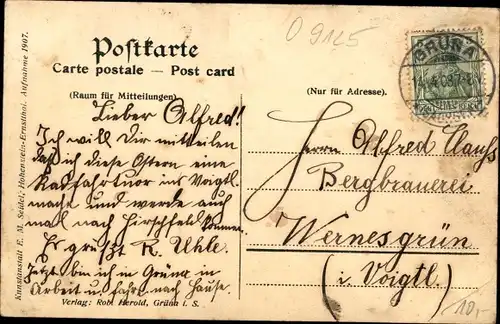 O 9125
Postkarte
Carte postale — Post card
(Raum für Mitteilungen)
(Nur für Adresse).
GRÜNA
Lieber Alfred!
Ich will Dir mitteilen
daß ich diese Ostern eine
Radfahrtuor ins Voigtl.
mache und werde auch
mal nach Hirschfeld kommen.
Es grüßt R. Uhle.
Jetzt bin ich in Grüna in
Arbeit u. fahr nach Hause.
Herrn Alfred
Bergbrauerei
Wernesgrün
(i. Voigtl.)
10,-
Verlag: Rob. Herold, Grüna i. S.
Kunstanstalt E. M. Seidel, Hohenstein-Ernstthal. Aufnahme 1907.